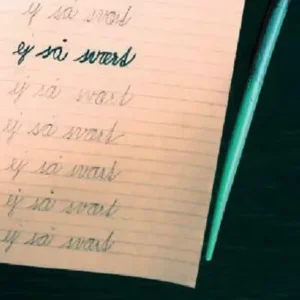 ej så svært
ej så svært
ej så svært
ej så svært
ej så svært
ej så svært
ej så svært